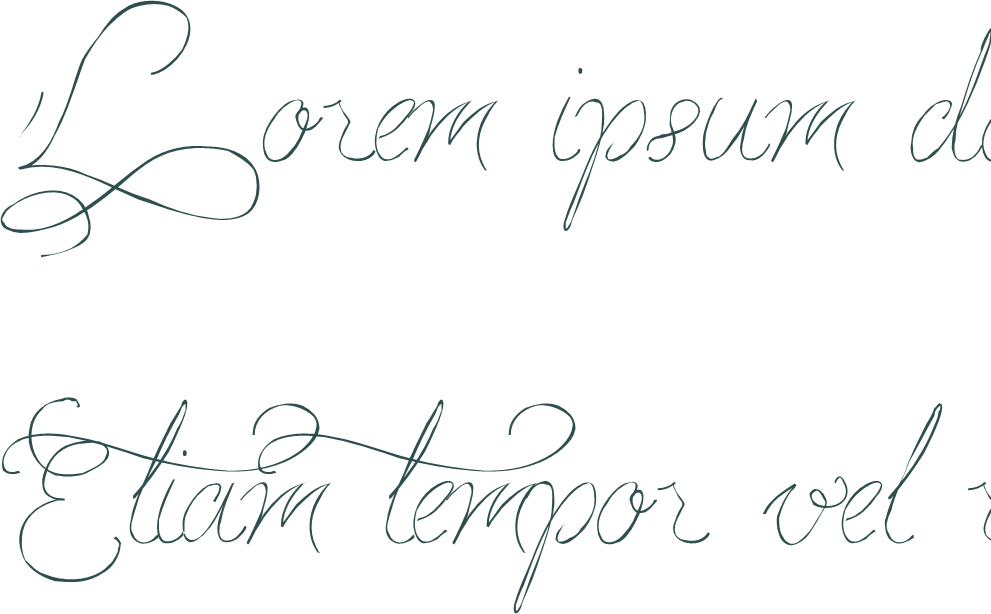 Lorem ipsum do
Etiam tempor vel